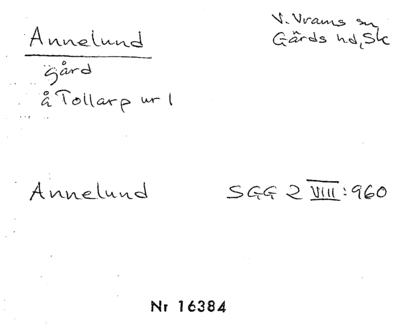 Annelund
V. Vrams sn,
Gärds hd, Sk
gård
å Tollarp nr 1
Annelund SGG 2 VIII:960
Nr 16384